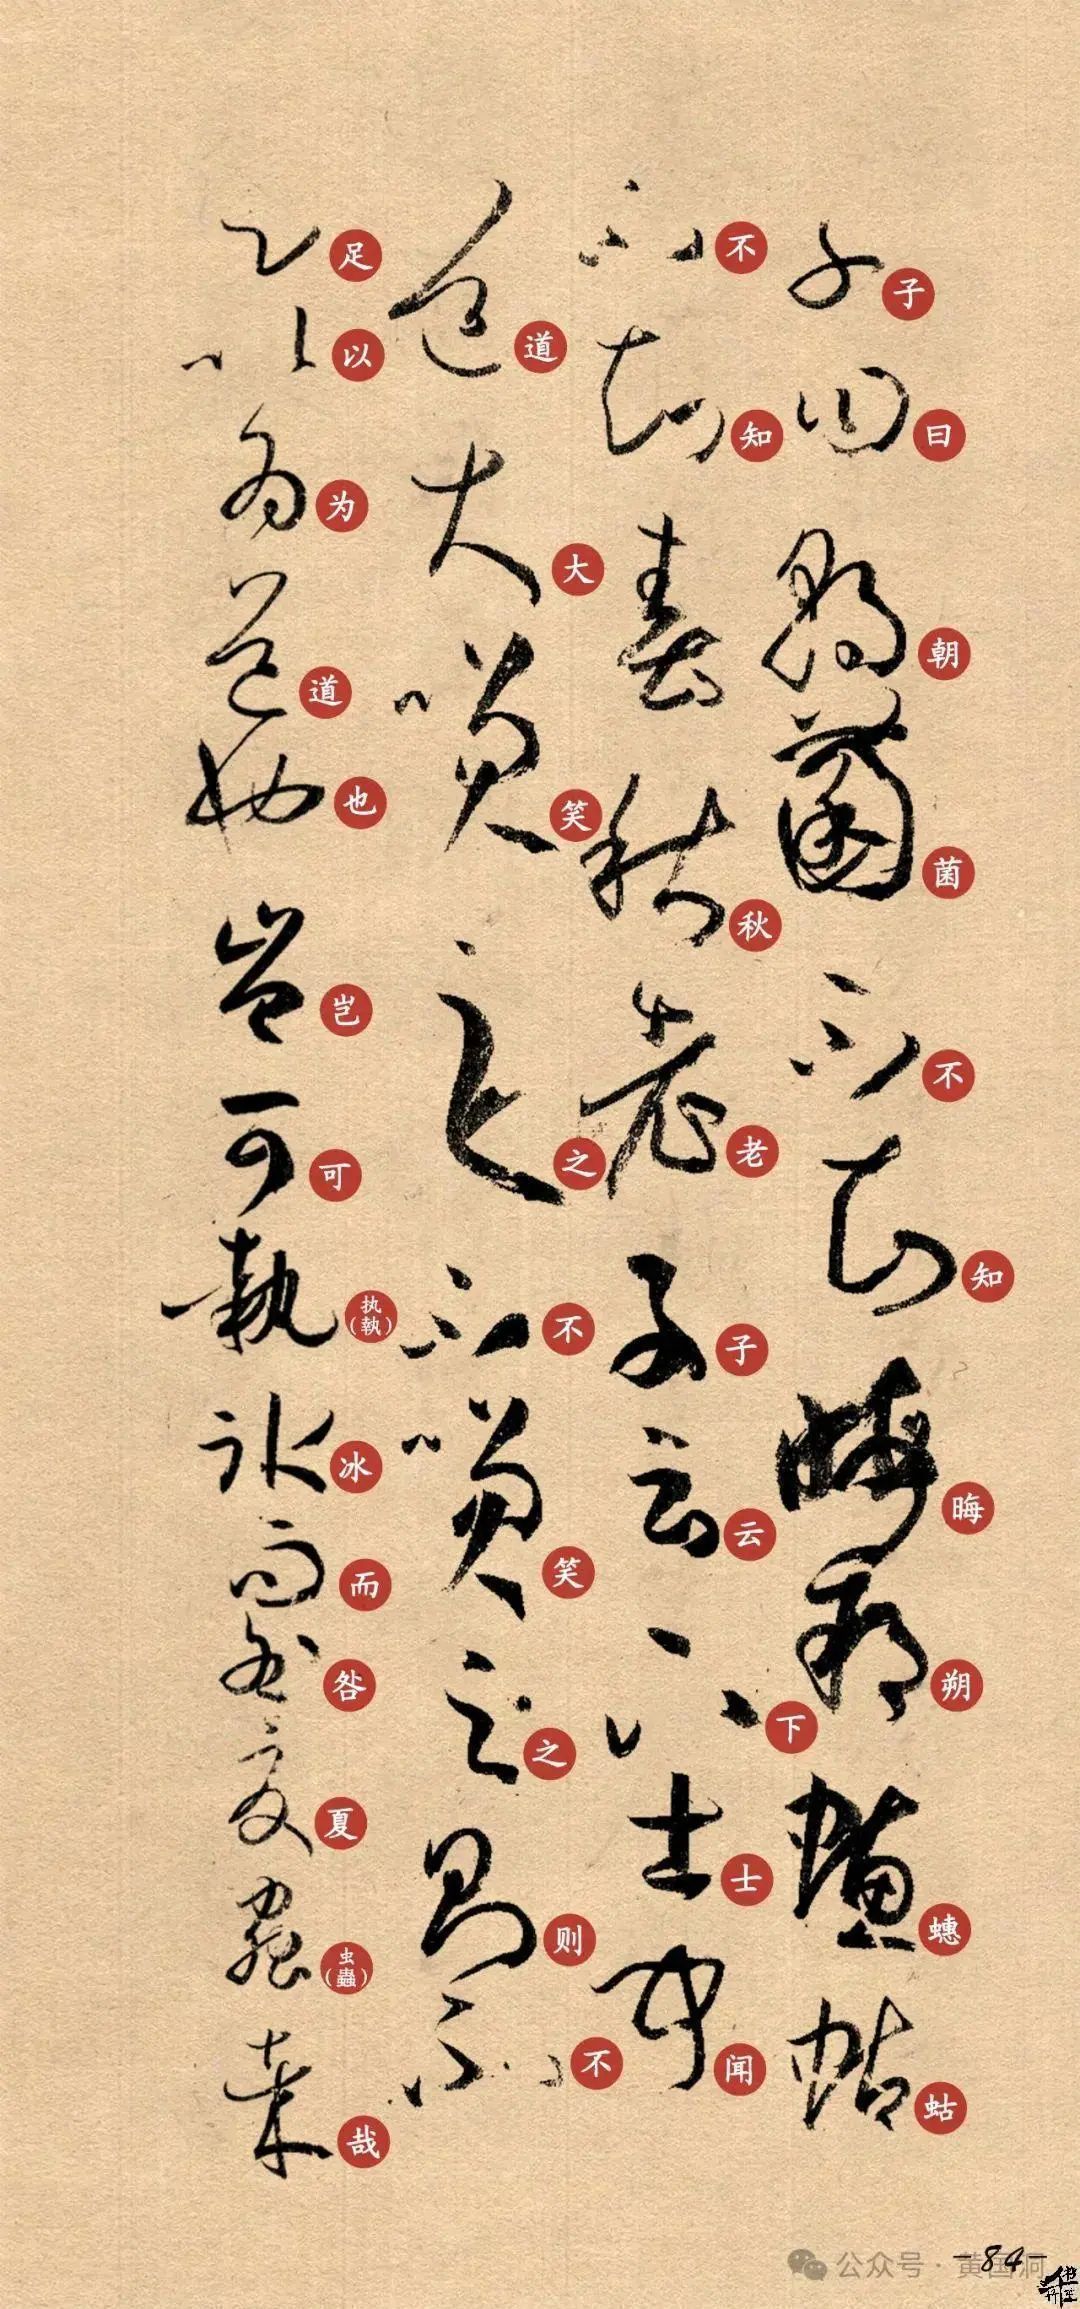 子曰朝菌不知晦朔蟪蛄
不知春秋老子云下士闻
道大笑之不笑之则不
足以为道也岂可执(執)冰而咎夏虫(蟲)哉
公众号·黄国洞
-84-